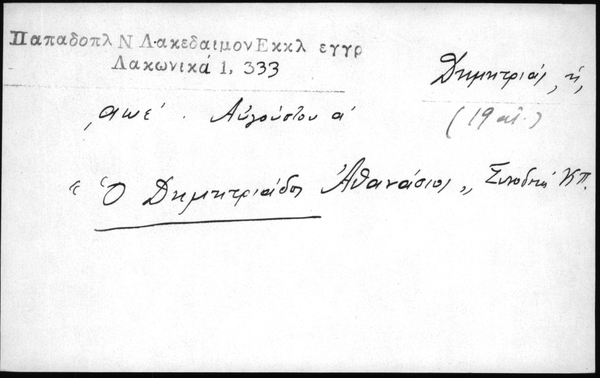 Παπαδοπλ Ν Λακεδαιμον Εκκλ εγγρ
Λακωνικά 1, 333
Δημητριάς, ἡ,
(19 αἰ.)
͵αωε΄. Αὐγούστου α΄
"Ὁ Δημητριάδος Ἀθανάσιος" Συνοδικὰ ΚΠ.